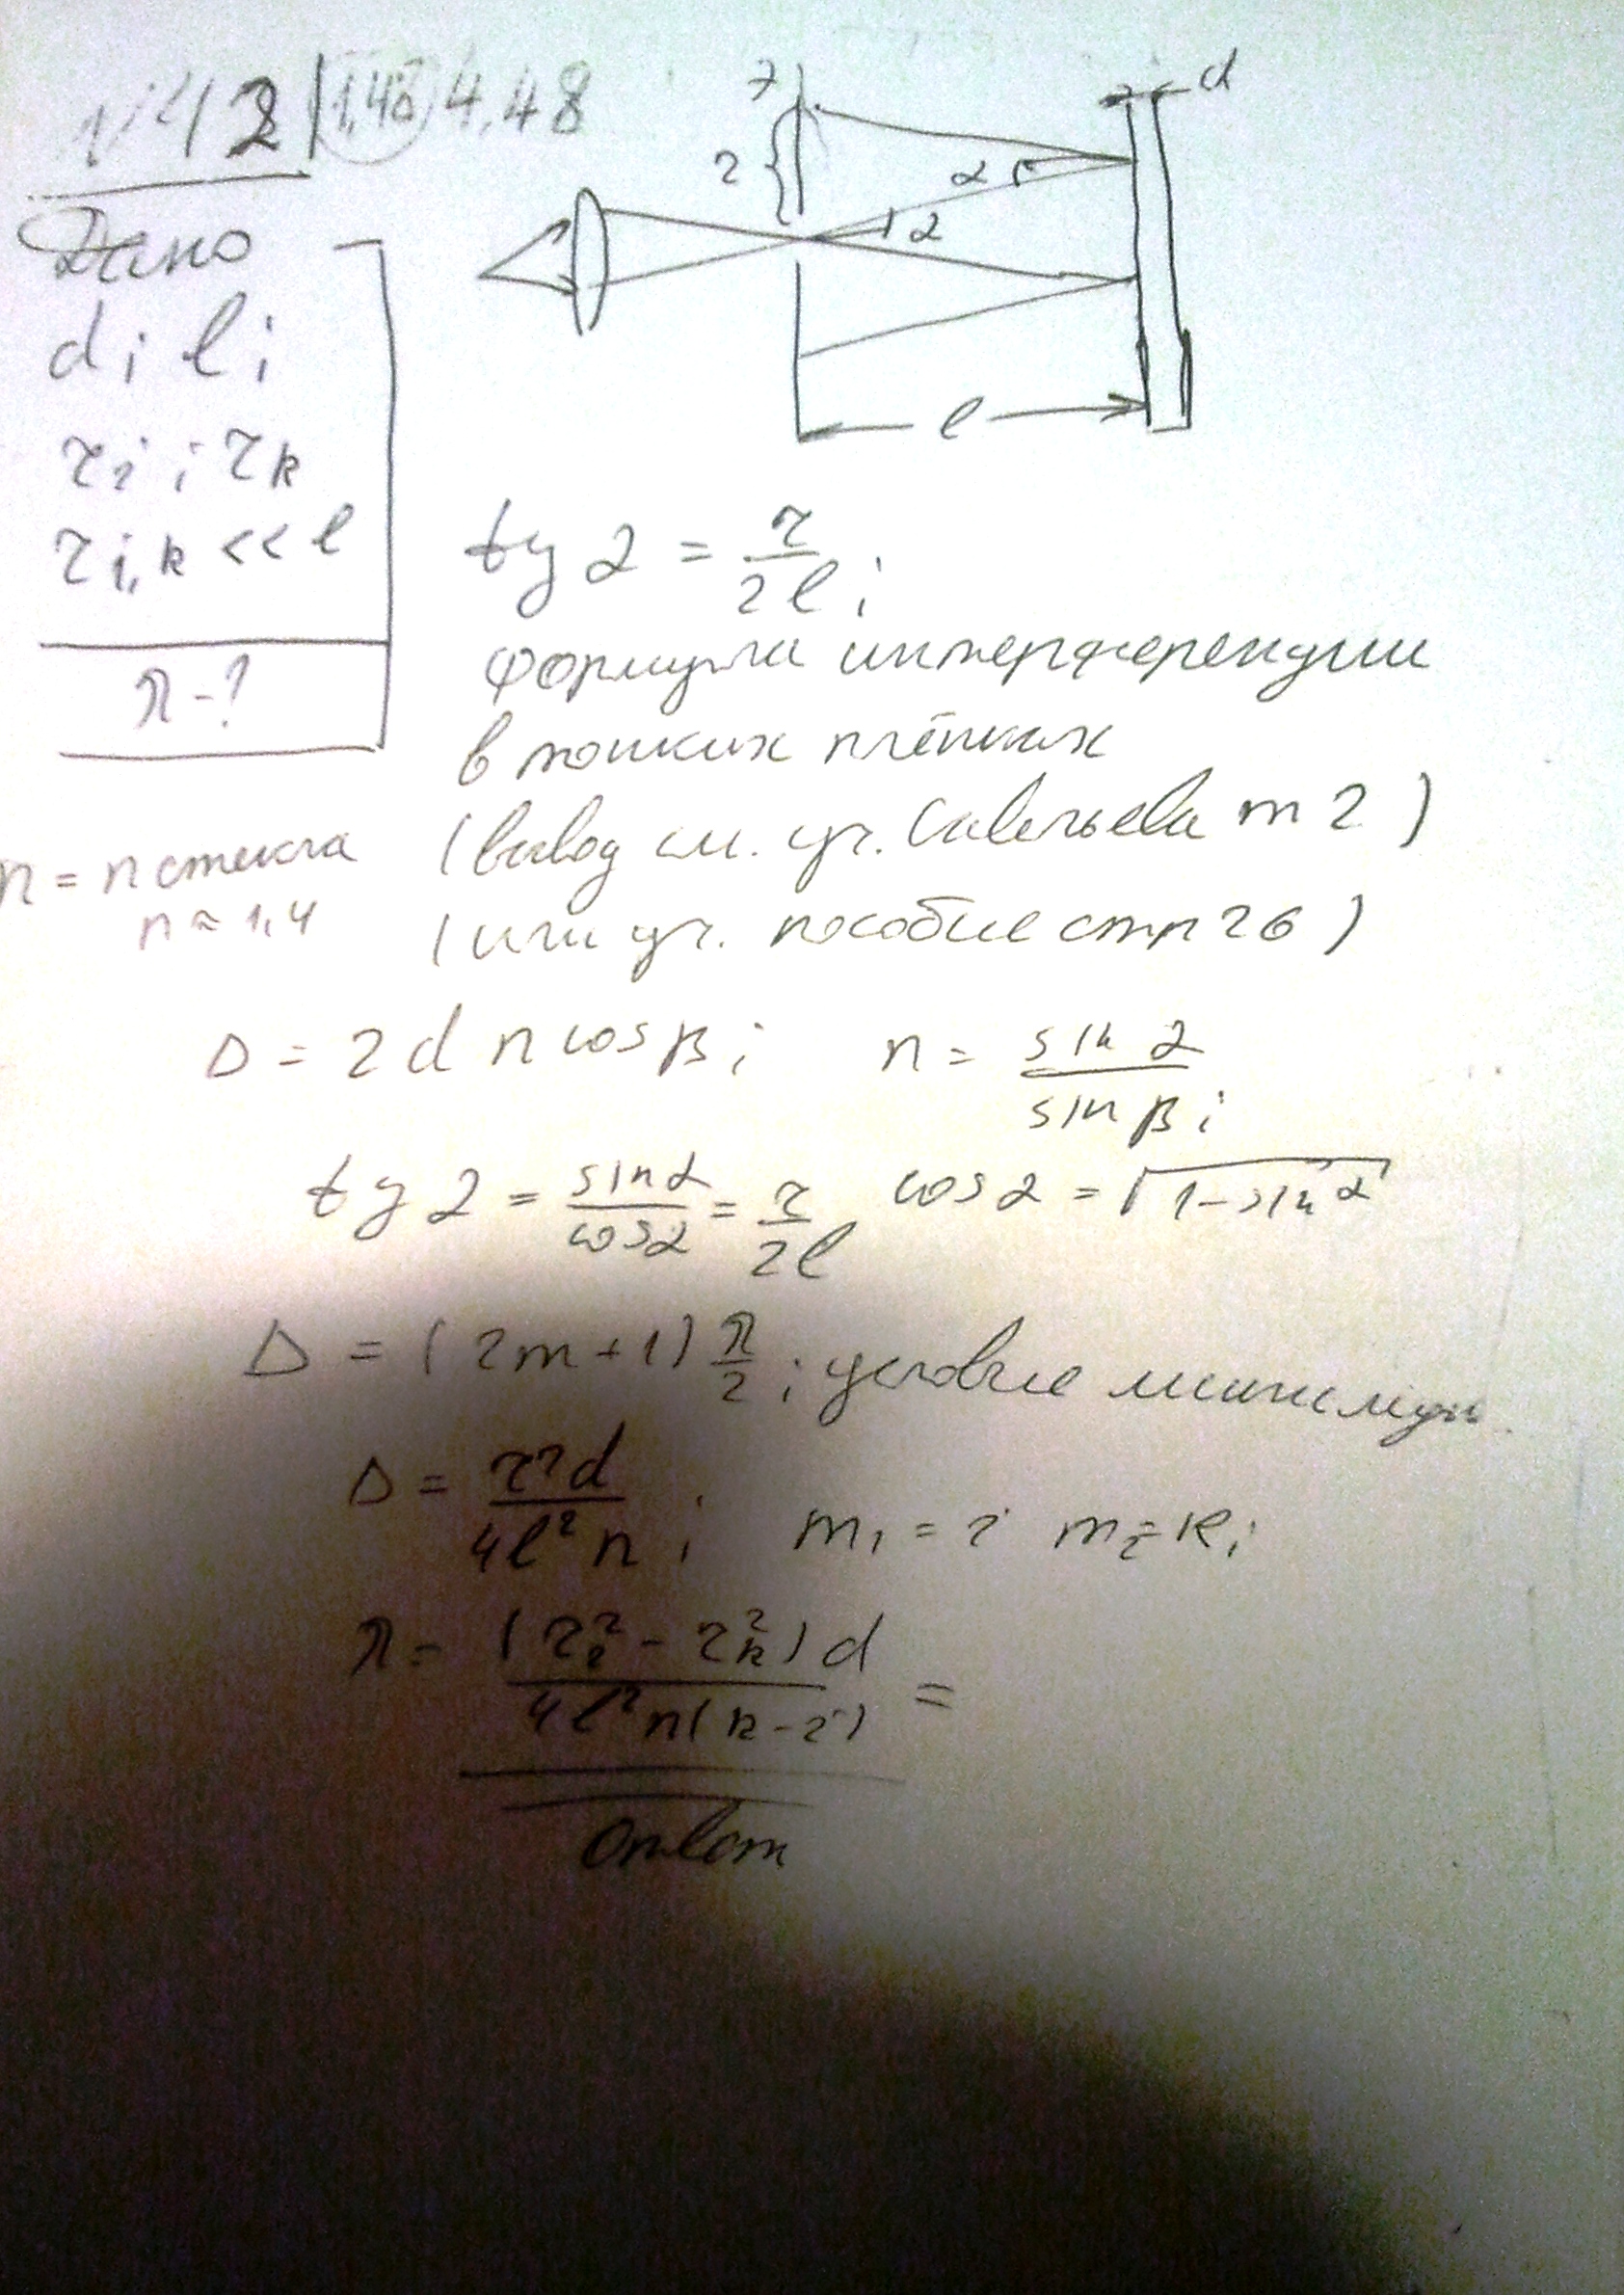 1.42 | 1,40 4.48
r { d
α
α
l
Дано
d; l;
r_i; r_k
r_i,k << l
λ - ?
n = n стекла
n ≈ 1,4
tg α = r/2l;
формула интерференции
в тонких плёнках
(вывод см. уч. Савельева т 2)
(или уч. пособие стр 26)
Δ = 2 d n cos β; n = sin α/sin β;
tg α = sin α/cos α = r/2l cos α = √(1 - sin² α)
Δ = (2m + 1) λ/2; условие минимум
Δ = r²d/4l²n; m₁ = i m₂ = k;
λ = (r_i² - r_k²) d/4l²n(k - i) =
Ответ